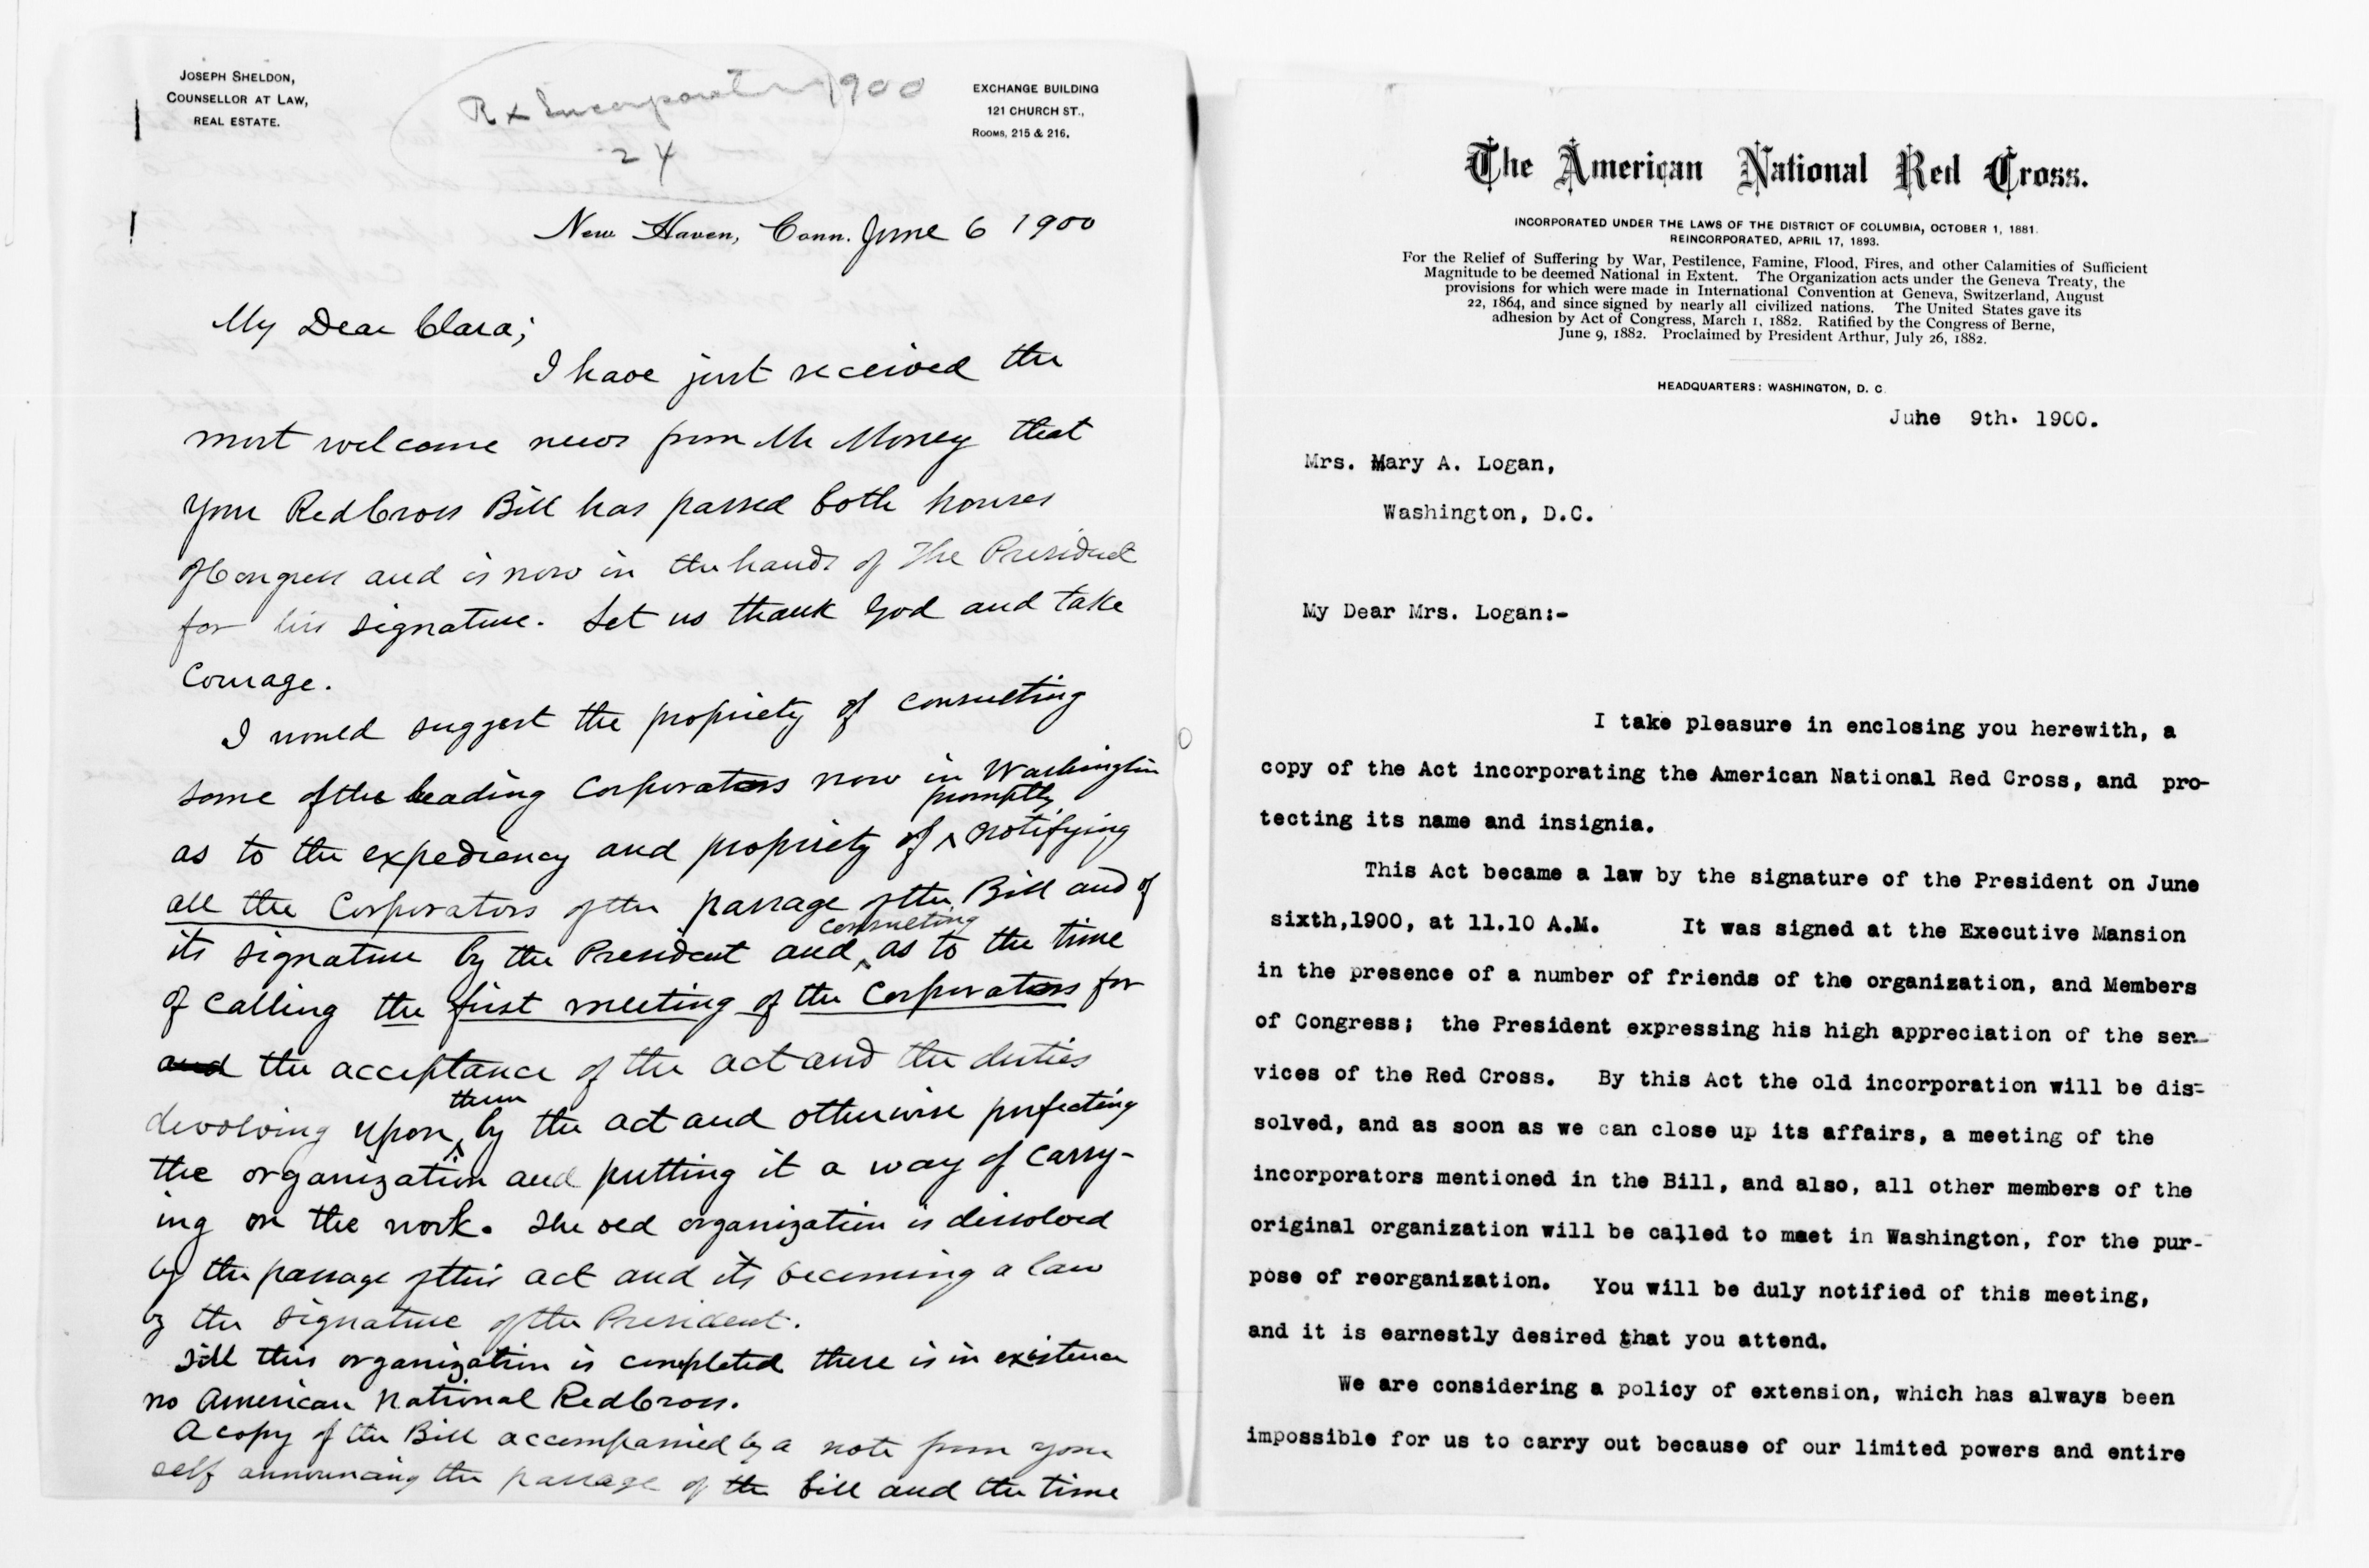 JOSEPH SHELDON,
COUNSELLOR AT LAW,
REAL ESTATE.
Rx Incorporation 1900
24
EXCHANGE BUILDING
121 CHURCH ST.,
ROOMS, 215 & 216.
New Haven, Conn. June 6 1900
My Dear Clara;
I have just received the
most welcome news from Mr Money that
your Red Cross Bill has passed both houses
of Congress and is now in the hands of The President
for his signature. Let us thank God and take
Courage.
I would suggest the propriety of consulting
some of the leading Corporators now in Washington
promptly
as to the expediency and propriety of ^ notifying
all the Corporators of the passage of the Bill and of
consulting
its signature by the President and ^ as to the time
of calling the first meeting of the Corporators for
and the acceptance of the act and the duties
them
devolving upon ^ by the act and otherwise perfecting
the organization and putting it a way of carry-
ing on the work. The old organization is dissolved
by the passage of this act and its becoming a law
by the signature of the President.
Till this organization is completed there is in existence
no American National Red Cross.
A copy of the Bill accompanied by a note from your
self announcing the passage of the bill and the time
The American National Red Cross.
INCORPORATED UNDER THE LAWS OF THE DISTRICT OF COLUMBIA, OCTOBER 1, 1881.
REINCORPORATED, APRIL 17, 1893.
For the Relief of Suffering by War, Pestilence, Famine, Flood, Fires, and other Calamities of Sufficient
Magnitude to be deemed National in Extent. The Organization acts under the Geneva Treaty, the
provisions for which were made in International Convention at Geneva, Switzerland, August
22, 1864, and since signed by nearly all civilized nations. The United States gave its
adhesion by Act of Congress, March 1, 1882. Ratified by the Congress of Berne,
June 9, 1882. Proclaimed by President Arthur, July 26, 1882.
HEADQUARTERS: WASHINGTON, D. C.
June 9th. 1900.
Mrs. Mary A. Logan,
Washington, D.C.
My Dear Mrs. Logan:-
I take pleasure in enclosing you herewith, a
copy of the Act incorporating the American National Red Cross, and pro-
tecting its name and insignia.
This Act became a law by the signature of the President on June
sixth,1900, at 11.10 A.M. It was signed at the Executive Mansion
in the presence of a number of friends of the organization, and Members
of Congress; the President expressing his high appreciation of the ser-
vices of the Red Cross. By this Act the old incorporation will be dis-
solved, and as soon as we can close up its affairs, a meeting of the
incorporators mentioned in the Bill, and also, all other members of the
original organization will be called to meet in Washington, for the pur-
pose of reorganization. You will be duly notified of this meeting,
and it is earnestly desired that you attend.
We are considering a policy of extension, which has always been
impossible for us to carry out because of our limited powers and entire